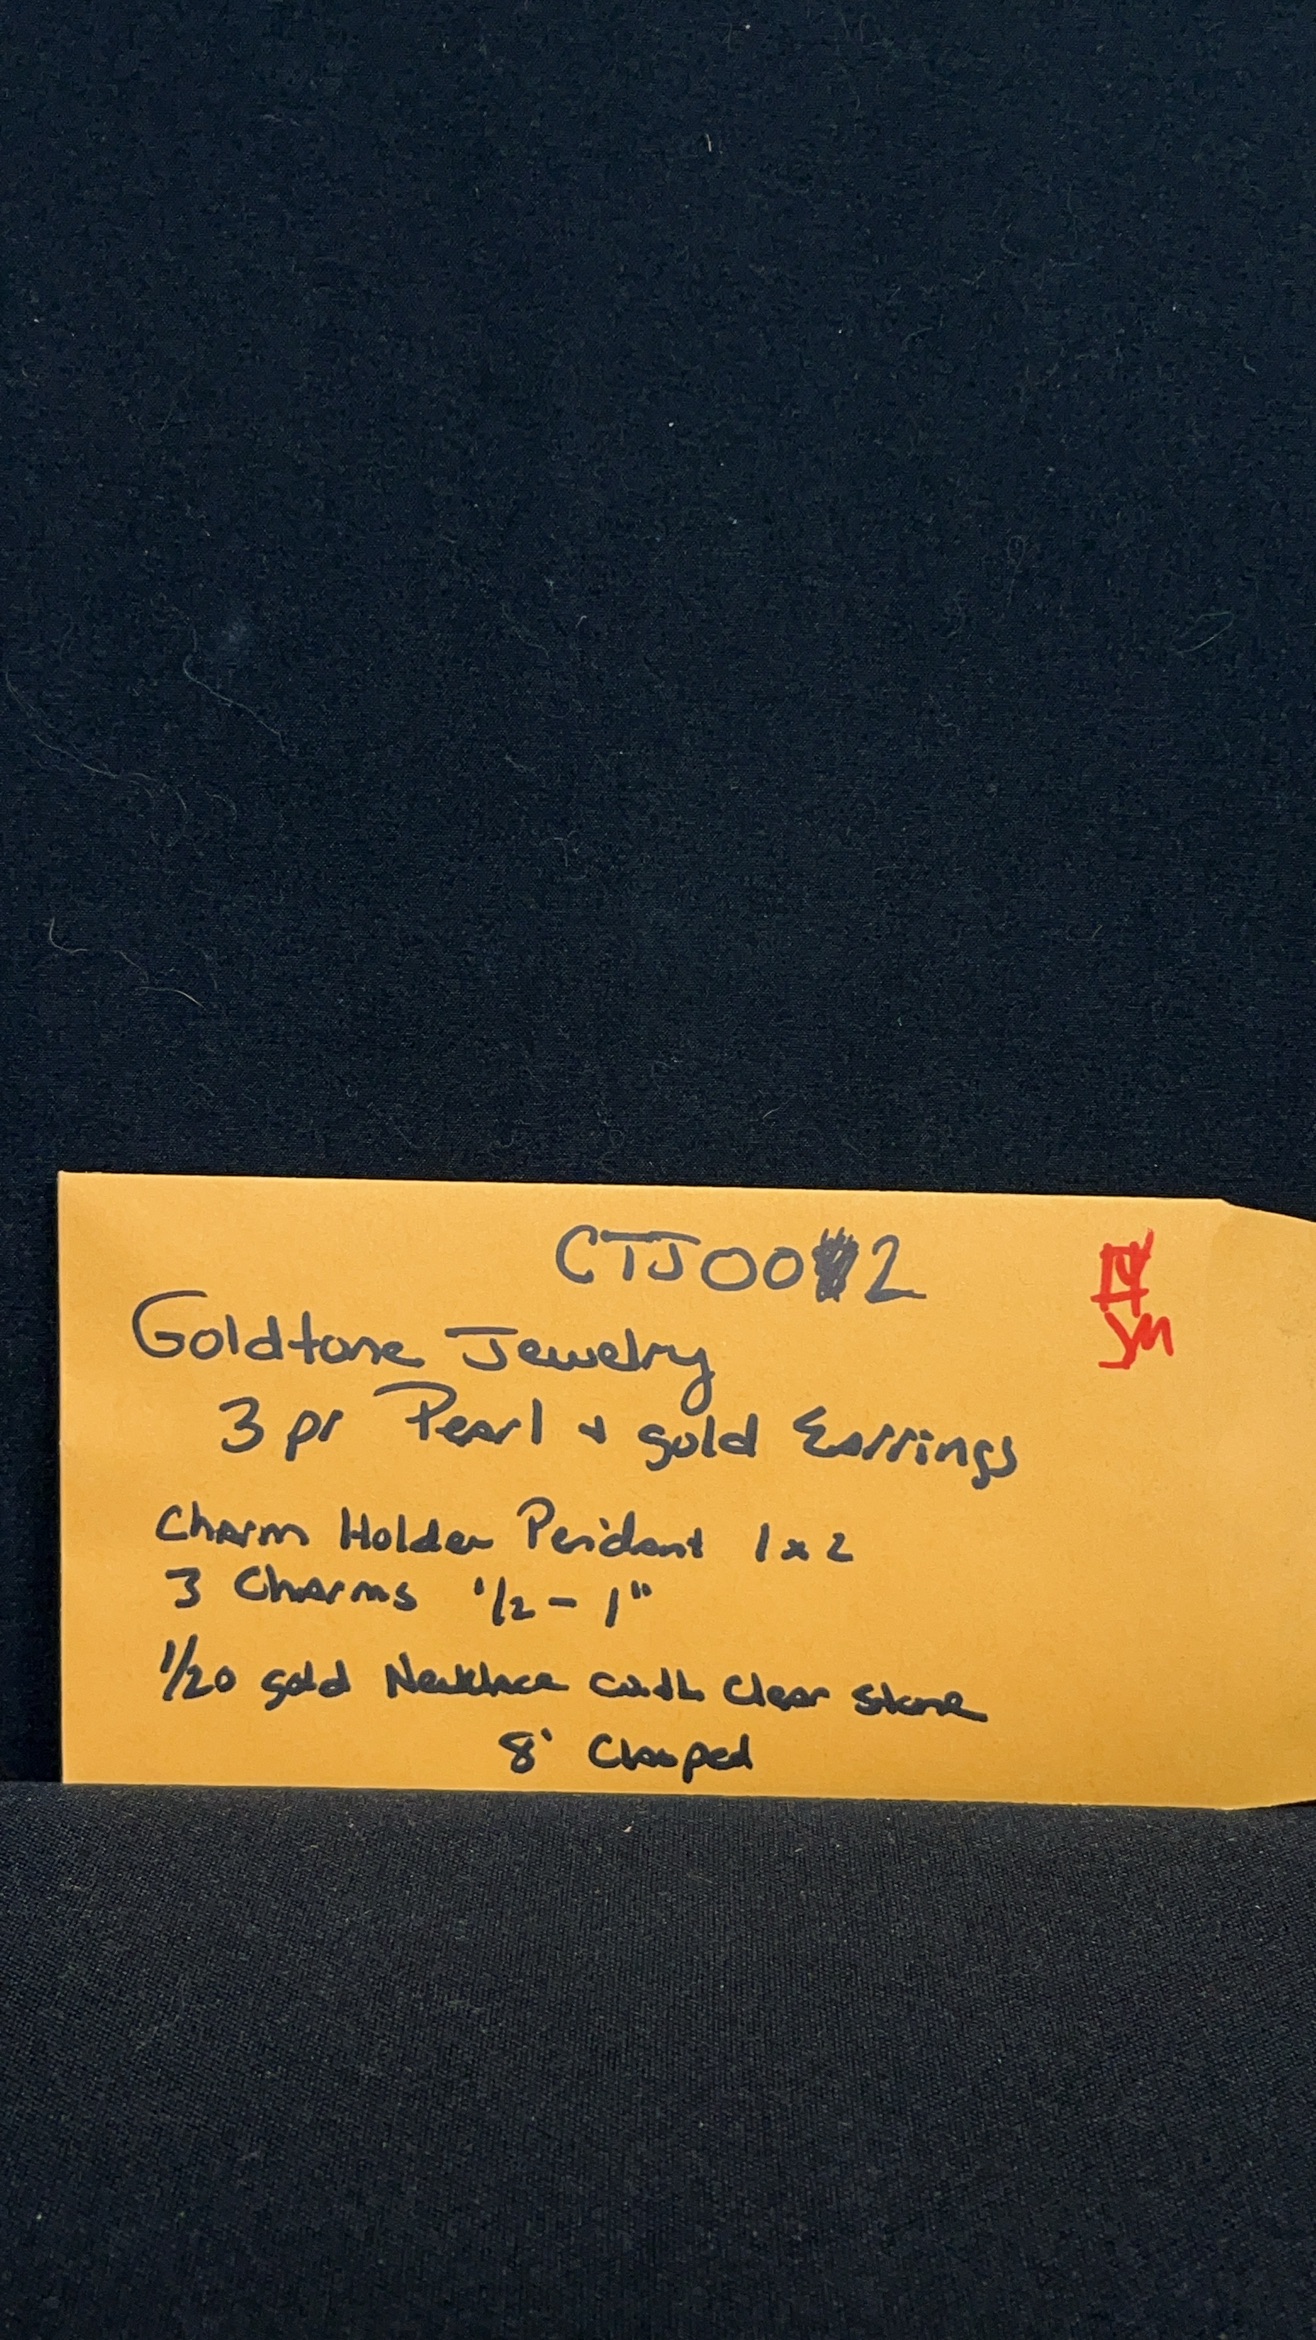 CTJ002
Goldtone Jewelry
3 pr Pearl + gold Earrings
Charm Holder Pendant 1 x 2
3 Charms 1/2 - 1"
1/20 gold Necklace with Clear Stone
8' Clasped
JM